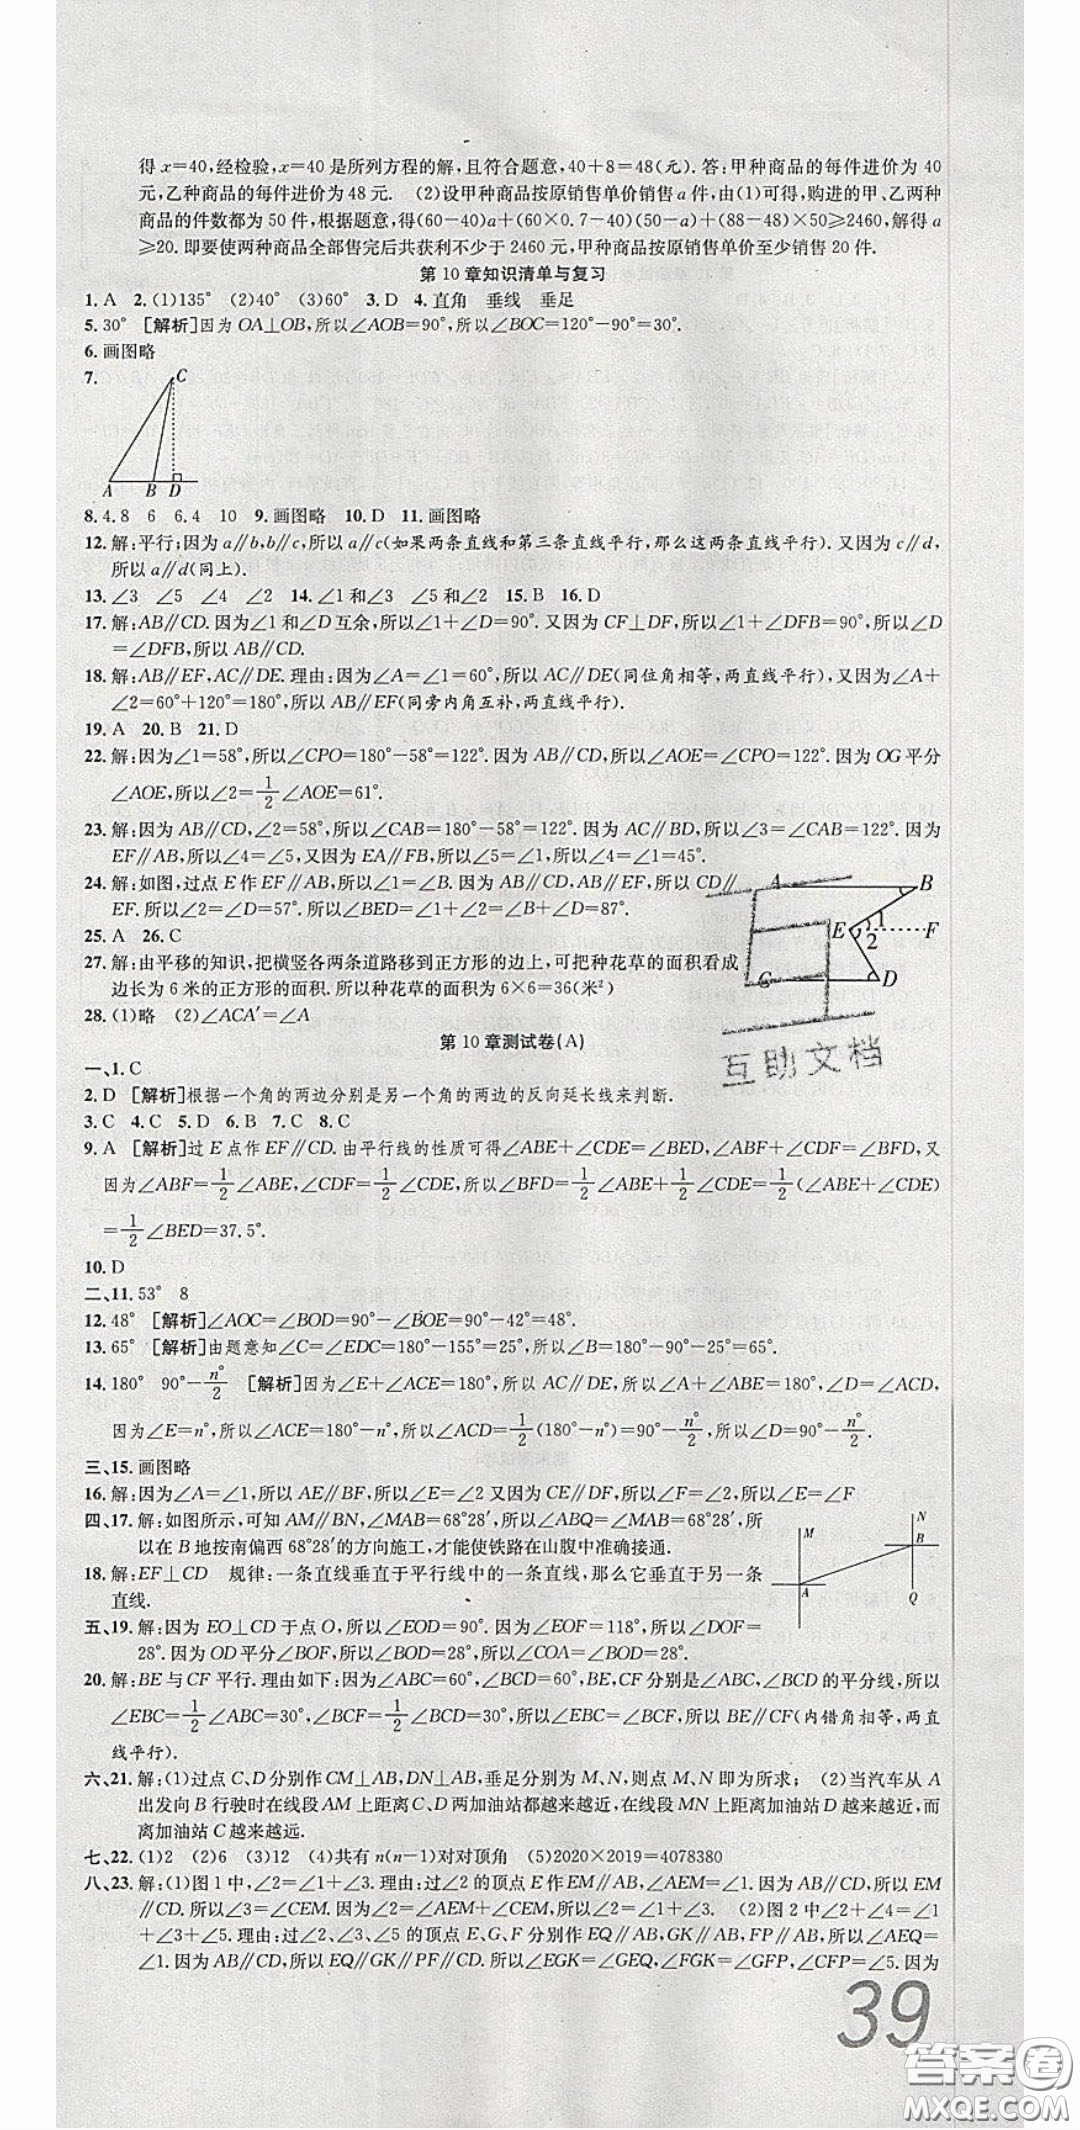 得x=40,经检验,x=40是所列方程的解,且符合题意,40+8=48(元).答:甲种商品的每件进价为40
元,乙种商品的每件进价为48元. (2)设甲种商品按原销售单价销售a件,由(1)可得,购进的甲、乙两种
商品的件数都为50件,根据题意,得(60-40)a+(60×0.7-40)(50-a)+(88-48)×50≥2460,解得a
≥20.即要使两种商品全部售完后共获利不少于2460元,甲种商品按原销售单价至少销售20件.
第10章知识清单与复习
1. A 2. (1)135° (2)40° (3)60° 3. D 4. 直角 垂线 垂足
5. 30° [解析]因为OA⊥OB,所以∠AOB=90°,所以∠BOC=120°-90°=30°.
6. 画图略
7.
C
A B D
8. 4.8 6 6.4 10 9. 画图略 10. D 11. 画图略
12. 解:平行;因为a∥b,b∥c,所以a∥c(如果两条直线和第三条直线平行,那么这两条直线平行).又因为c∥d,
所以a∥d(同上).
13. ∠3 ∠5 ∠4 ∠2 14. ∠1和∠3 ∠5和∠2 15. B 16. D
17. 解:AB∥CD.因为∠1和∠D互余,所以∠1+∠D=90°.又因为CF⊥DF,所以∠1+∠DFB=90°,所以∠D
=∠DFB,所以AB∥CD.
18. 解:AB∥EF,AC∥DE.理由:因为∠A=∠1=60°,所以AC∥DE(同位角相等,两直线平行),又因为∠A+
∠2=60°+120°=180°,所以AB∥EF(同旁内角互补,两直线平行).
19. A 20. B 21. D
22. 解:因为∠1=58°,所以∠CPO=180°-58°=122°.因为AB∥CD,所以∠AOE=∠CPO=122°.因为OG平分
∠AOE,所以∠2=1/2∠AOE=61°.
23. 解:因为AB∥CD,∠2=58°,所以∠CAB=180°-58°=122°.因为AC∥BD,所以∠3=∠CAB=122°.因为
EF∥AB,所以∠4=∠5,又因为EA∥FB,所以∠5=∠1,所以∠4=∠1=45°.
24. 解:如图,过点E作EF∥AB,所以∠1=∠B.因为AB∥CD,AB∥EF,所以CD∥
EF.所以∠2=∠D=57°.所以∠BED=∠1+∠2=∠B+∠D=87°.
A B
E 1 2 F
C D
25. A 26. C
27. 解:由平移的知识,把横竖各两条道路移到正方形的边上,可把种花草的面积看成
边长为6米的正方形的面积.所以种花草的面积为6×6=36(米²)
28. (1)略 (2)∠ACA′=∠A
互助文档
第10章测试卷(A)
一、1. C
2. D [解析]根据一个角的两边分别是另一个角的两边的反向延长线来判断.
3. C 4. C 5. D 6. B 7. C 8. C
9. A [解析]过E点作EF∥CD.由平行线的性质可得∠ABE+∠CDE=∠BED,∠ABF+∠CDF=∠BFD,又
因为∠ABF=1/2∠ABE,∠CDF=1/2∠CDE,所以∠BFD=1/2∠ABE+1/2∠CDE=1/2(∠ABE+∠CDE)
=1/2∠BED=37.5°.
10. D
二、11. 53° 8
12. 48° [解析]∠AOC=∠BOD=90°-∠BOE=90°-42°=48°.
13. 65° [解析]由题意知∠C=∠EDC=180°-155°=25°,所以∠B=180°-90°-25°=65°.
14. 180° 90°-n°/2 [解析]因为∠E+∠ACE=180°,所以AC∥DE,所以∠A+∠ABE=180°,∠D=∠ACD,
因为∠E=n°,所以∠ACE=180°-n°,所以∠ACD=1/2(180°-n°)=90°-n°/2,所以∠D=90°-n°/2.
三、15. 画图略
16. 解:因为∠A=∠1,所以AE∥BF,所以∠E=∠2 又因为CE∥DF,所以∠F=∠2,所以∠E=∠F
四、17. 解:如图所示,可知AM∥BN,∠MAB=68°28′,所以∠ABQ=∠MAB=68°28′,所
以在B地按南偏西68°28′的方向施工,才能使铁路在山腹中准确接通.
M N
B
A Q
18. 解:EF⊥CD 规律:一条直线垂直于平行线中的一条直线,那么它垂直于另一条
直线.
五、19. 解:因为EO⊥CD于点O,所以∠EOD=90°.因为∠EOF=118°,所以∠DOF=
28°.因为OD平分∠BOF,所以∠BOD=28°,所以∠COA=∠BOD=28°.
20. 解:BE与CF平行.理由如下:因为∠ABC=60°,∠BCD=60°,BE,CF分别是∠ABC,∠BCD的平分线,所以
∠EBC=1/2∠ABC=30°,∠BCF=1/2∠BCD=30°,所以∠EBC=∠BCF,所以BE∥CF(内错角相等,两直
线平行).
六、21. 解:(1)过点C、D分别作CM⊥AB,DN⊥AB,垂足分别为M、N,则点M、N即为所求; (2)当汽车从A
出发向B行驶时在线段AM上距离C、D两加油站都越来越近,在线段MN上距离加油站D越来越近,而
离加油站C越来越远.
七、22. (1)2 (2)6 (3)12 (4)共有n(n-1)对对顶角 (5)2020×2019=4078380
八、23. 解:(1)图1中,∠2=∠1+∠3.理由:过∠2的顶点E作EM∥AB,∠AEM=∠1.因为AB∥CD,所以EM
∥CD.所以∠3=∠CEM.因为∠2=∠AEM+∠CEM,所以∠2=∠1+∠3. (2)图2中∠2+∠4=∠1
+∠3+∠5.理由:过∠2、∠3、∠4的顶点E、G、F分别作EQ∥AB,GK∥AB,FP∥AB,所以∠AEQ=
∠1.因为AB∥CD,所以EQ∥GK∥PF∥CD.所以∠EGK=∠GEQ,∠FGK=∠GFP,∠CFP=∠5.因为
39
答案圈
MXQE.COM